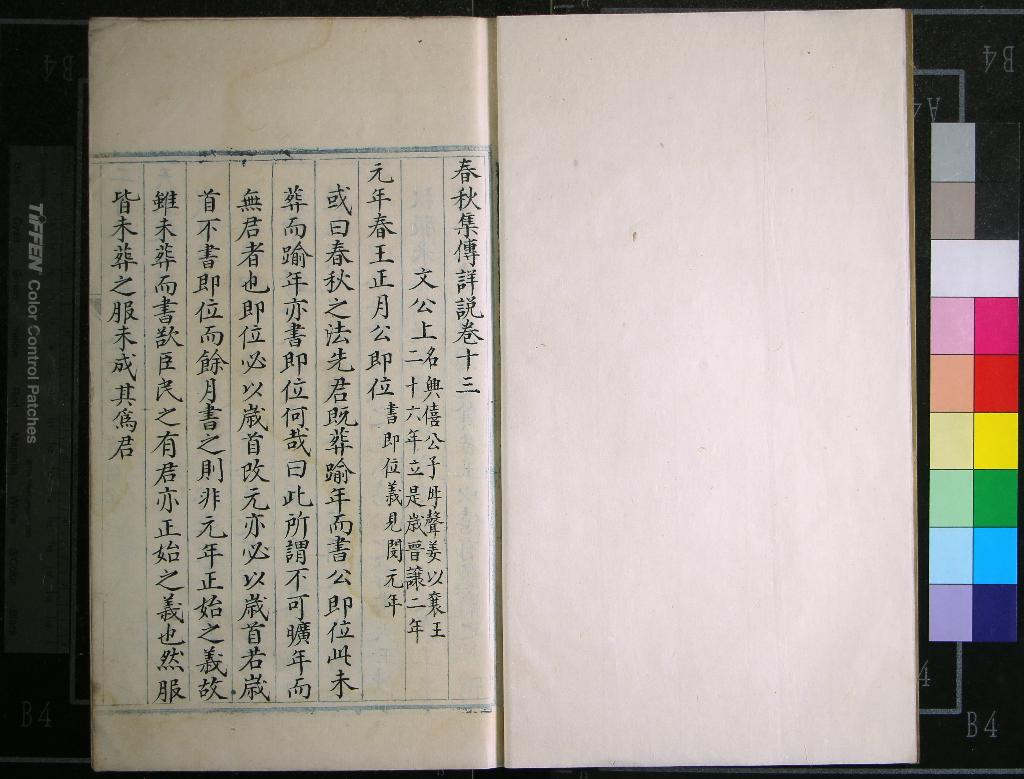 春秋集傳詳説卷十三
文公上名興僖公子母聲姜以襄王
二十六年立是歳晉襄二年
元年春王正月公即位書即位義見閔元年
或曰春秋之法先君既葬踰年而書公即位此未
葬而踰年亦書即位何哉曰此所謂不可曠年而
無君者也即位必以歳首改元亦必以歳首若歳
首不書即位而餘月書之則非元年正始之義故
雖未葬而書欵臣民之有君亦正始之義也然服
皆未葬之服未成其爲君
TIFFEN Color Control Patches
B4
B4
B4
B4
A4
4